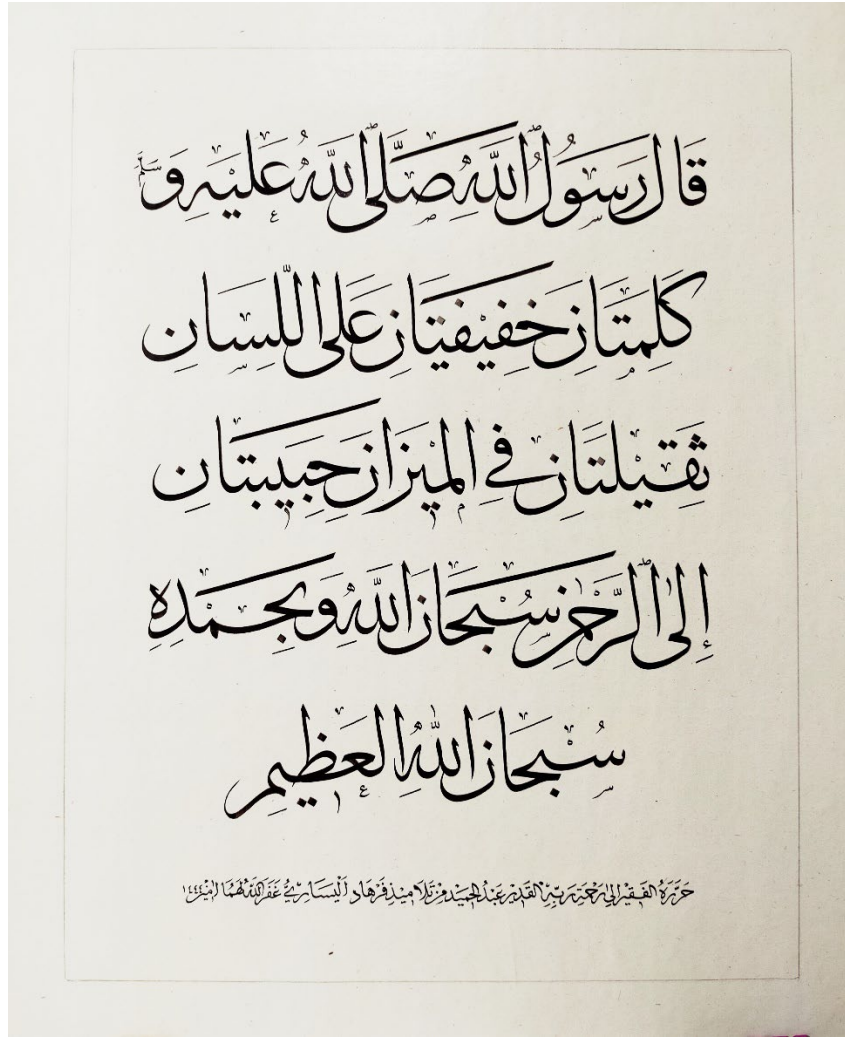 قَالَ رَسُولُ اللَّهِ صَلَّى اللَّهُ عَلَيْهِ وَسَلَّمَ
كَلِمَتَانِ خَفِيفَتَانِ عَلَى اللِّسَانِ
ثَقِيلَتَانِ فِي الْمِيزَانِ حَبِيبَتَانِ
إِلَى الرَّحْمٰنِ سُبْحَانَ اللَّهِ وَبِحَمْدِهِ
سُبْحَانَ اللَّهِ الْعَظِيمِ
حَرَّرَهُ الْفَقِيرُ إِلَى رَحْمَةِ رَبِّهِ الْقَدِيرِ عَبْدُ الْحَمِيدِ مِنْ تَلَامِيذِ فَرْهَاد غَفَرَ اللَّهُ لَهُمَا آمِين ١٤٤٤